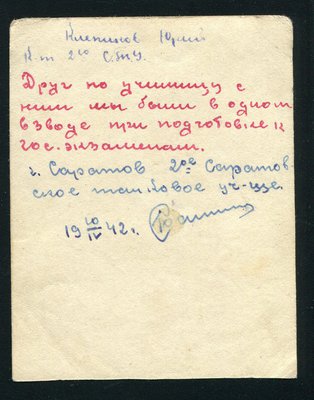 Клепиков Юрий
К-т 2го СТУ.
Друг по училищу с
ним мы были в одном
взводе при подготовке к
гос. экзаменам.
г. Саратов 2ое Саратов-
ское танковое уч-ще
19 10/IV 42 г.